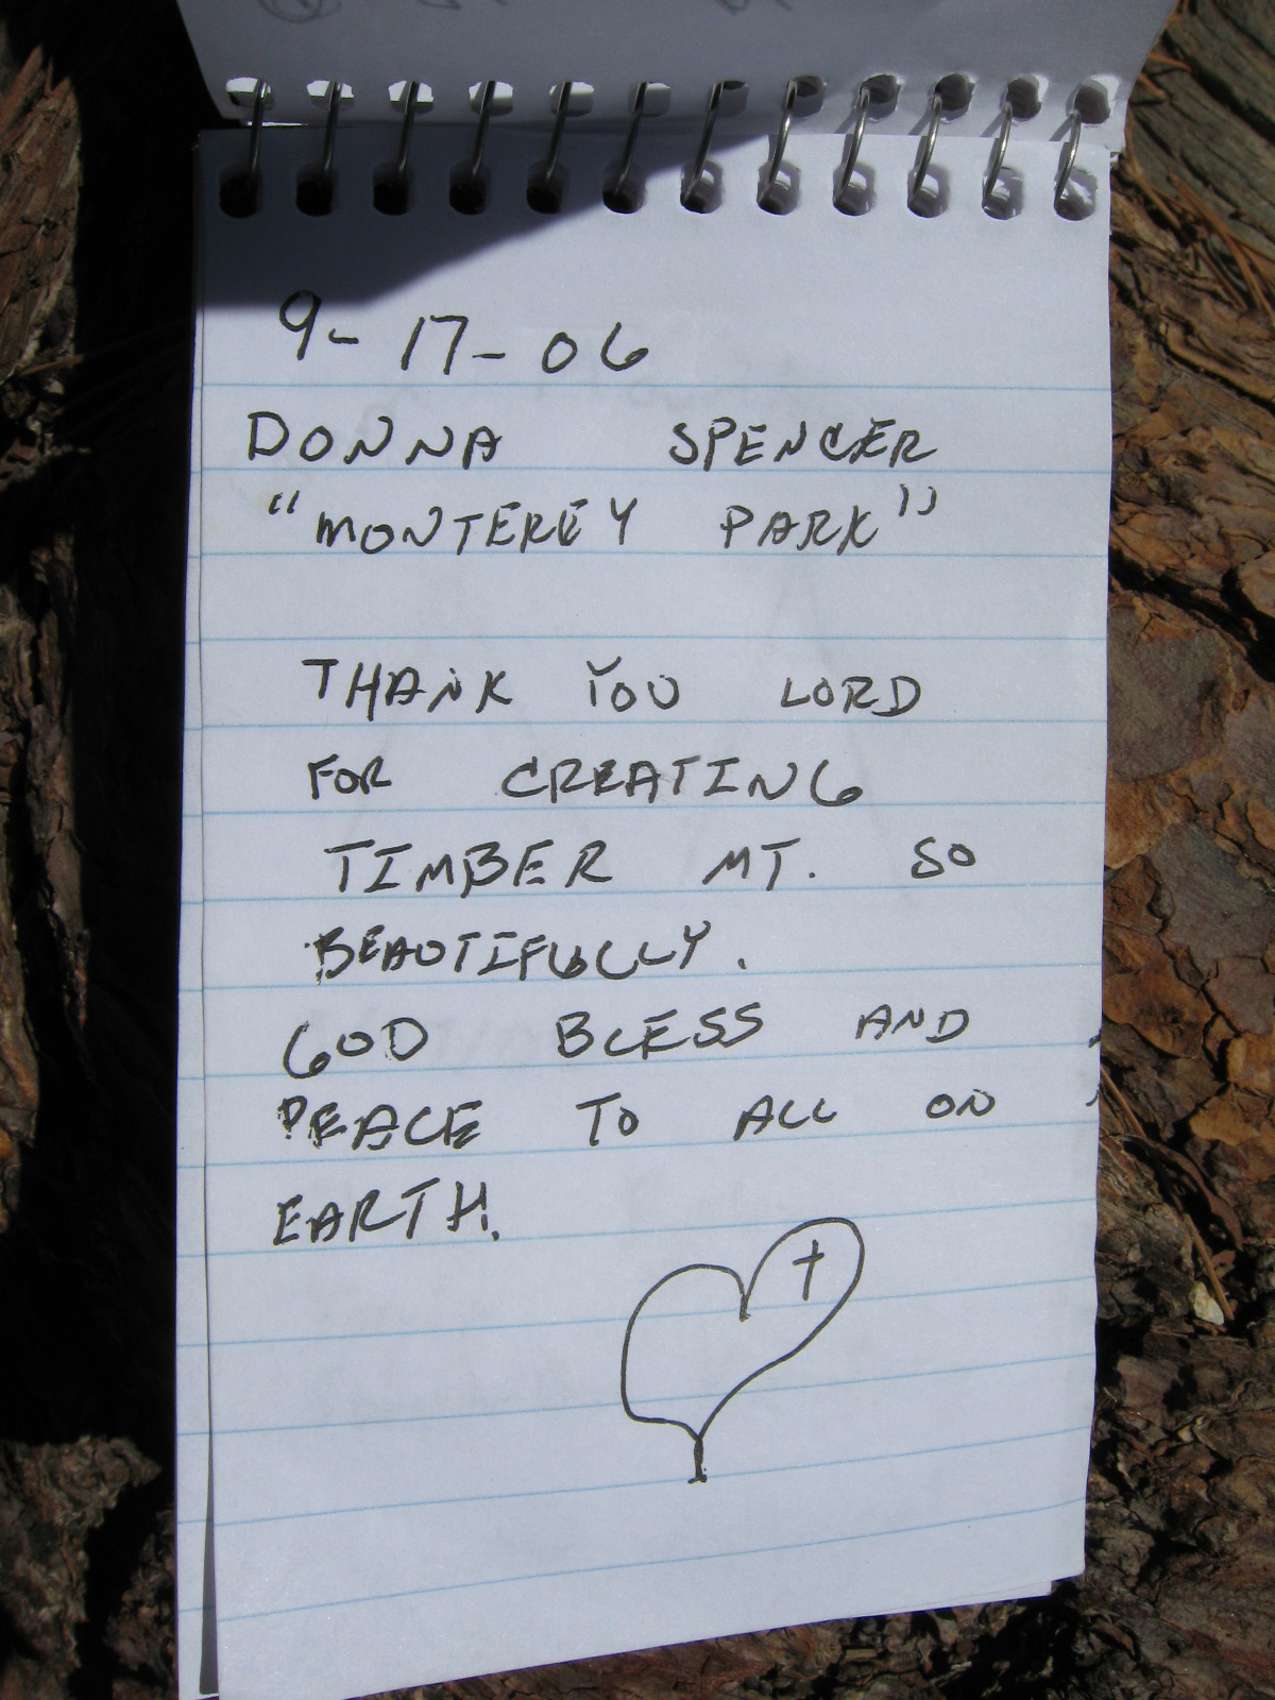 9-17-06
DONNA SPENCER
"MONTEREY PARK"
THANK YOU LORD
FOR CREATING
TIMBER MT. SO
BEAUTIFULLY.
GOD BLESS AND
PEACE TO ALL ON
EARTH.